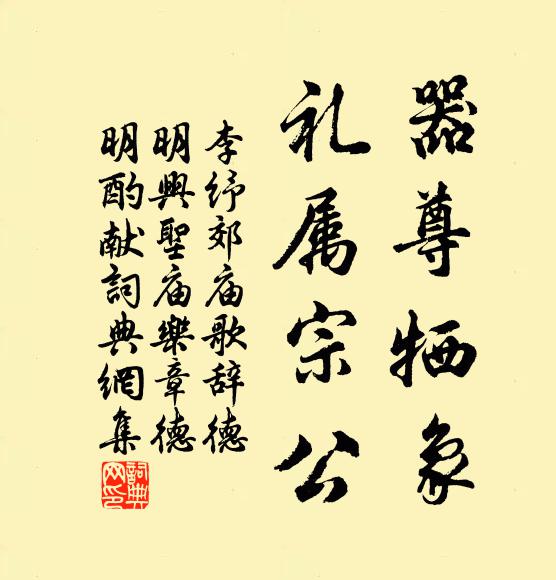 器尊牺象
礼属宗公
李纾郊庙歌辞德
明興聖庙樂章德
明酌献詞典網集
詞典网印